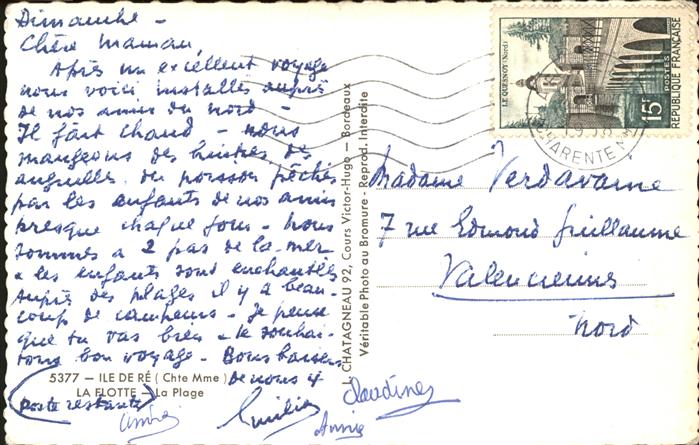 Dimanche -
Chère Maman,
Après un excellent voyage
nous voici installés auprès
de nos amis du nord -
Il fait chaud - nous
mangeons des huitres des
anguilles du poisson pêchés
par les enfants de nos amis
presque chaque jour - nous
sommes à 2 pas de la mer
& les enfants sont enchantés
auprès des plages il y a beau-
coup de campeurs - Je pense
que tu vas bien & te souhai-
tons bon voyage - Bons baisers
de nous 4
5377 — ILE DE RÉ ( Chte Mme )
LA FLOTTE — La Plage
(Poste restante)
Emilie
Claudine
Annie
L. CHATAGNEAU 92, Cours Victor-Hugo — Bordeaux
Véritable Photo au Bromure - Reprod. Interdite
LE QUESNOY (Nord)
15F
POSTES
REPUBLIQUE FRANÇAISE
CHARENTE MME
Madame Verdavaine
7 rue Edmond Guillaume
Valenciennes
Nord